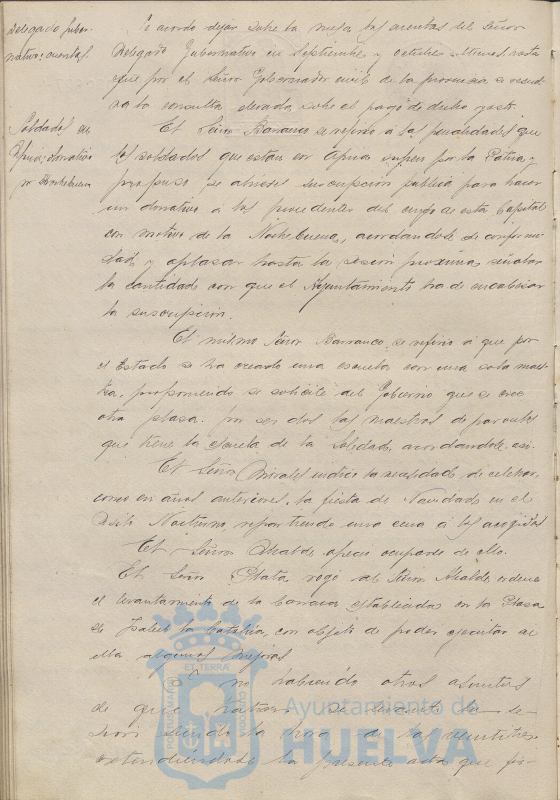 Delegado guber-
nativo: cuentas.
Se acordó dejar sobre la mesa las cuentas del Señor
Delegado Gubernativo en Septiembre y Octubre últimos, hasta
que por el Señor Gobernador civil de la provincia se resuel-
va la consulta elevada sobre el pago de dicho gasto.
Soldados en
Africa: donativo
por Nochebuena
El Señor Barranco se refirió á las penalidades que
los soldados que están en Africa sufren por la Patria y
propuso se abriese suscripción pública para hacer
un donativo á los procedentes del cupo de esta Capital
con motivo de la Nochebuena, acordándose de conformi-
dad, y aplazar hasta la sesión próxima señalar
la cantidad con que el Ayuntamiento ha de encabezar
la suscripción.
El mismo Señor Barranco, se refirió á que por
el Estado se ha creado una escuela con una sola maes-
tra, proponiendo se solicite del Gobierno que se cree
otra plaza, por ser dos las maestras de párvulos
que tiene la Escuela de la Soledad, acordándose así.
El Señor indicó la necesidad de celebrar,
como en años anteriores, la fiesta de Navidad en el
Asilo Nocturno repartiendo una cena á los acogidos
El Señor Alcalde ofreció ocuparse de ello.
El Señor rogó al Señor Alcalde ordene
el levantamiento de la barraca establecida en la Plaza
de Isabel la Católica, con objeto de poder ejecutar en
ella algunas mejoras.
Y no habiendo otros asuntos
de que tratar, se levantó la se-
sión siendo la hora de las veintitres
extendiéndose la presente acta que fir-
PORTUS MARIS
ET TERRAE
CUSTODIA
Ayuntamiento de
HUELVA